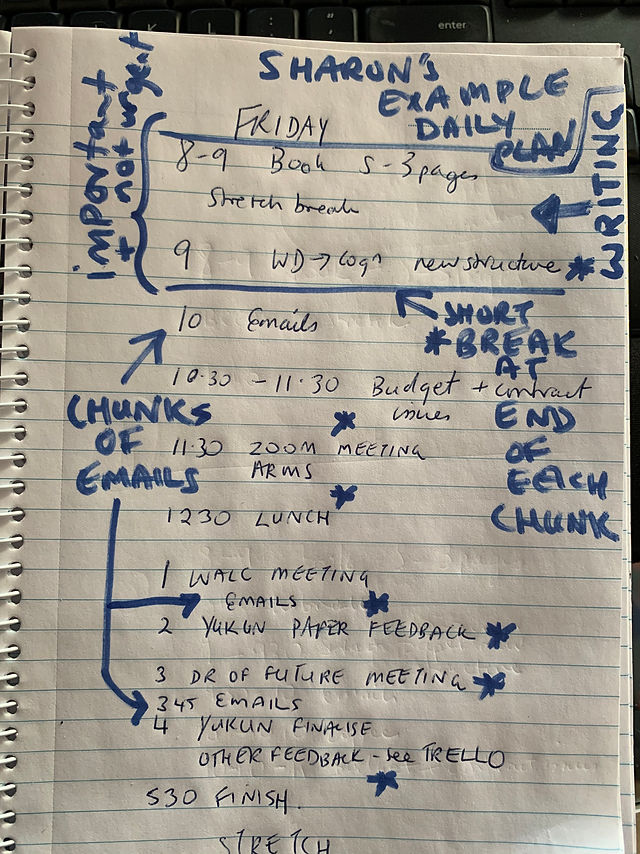 enter
SHARON'S
EXAMPLE
DAILY
PLAN
important
+ not urgent
WRITING
FRIDAY
8-9 Book 5-3 pages
Stretch break
9 WD → new structure *
10 Emails
SHORT
* BREAK
AT
END
OF
EACH
CHUNK
CHUNKS
OF
EMAILS
10.30 - 11.30 Budget + contract
issues
*
11.30 ZOOM MEETING
ARMS
*
1230 LUNCH
1 WALC MEETING
EMAILS *
2 YUKUN PAPER FEEDBACK *
3 DR OF FUTURE MEETING *
345 EMAILS
4 YUKUN FINALISE
OTHER FEEDBACK - see TRELLO
*
530 FINISH.
STRETCH